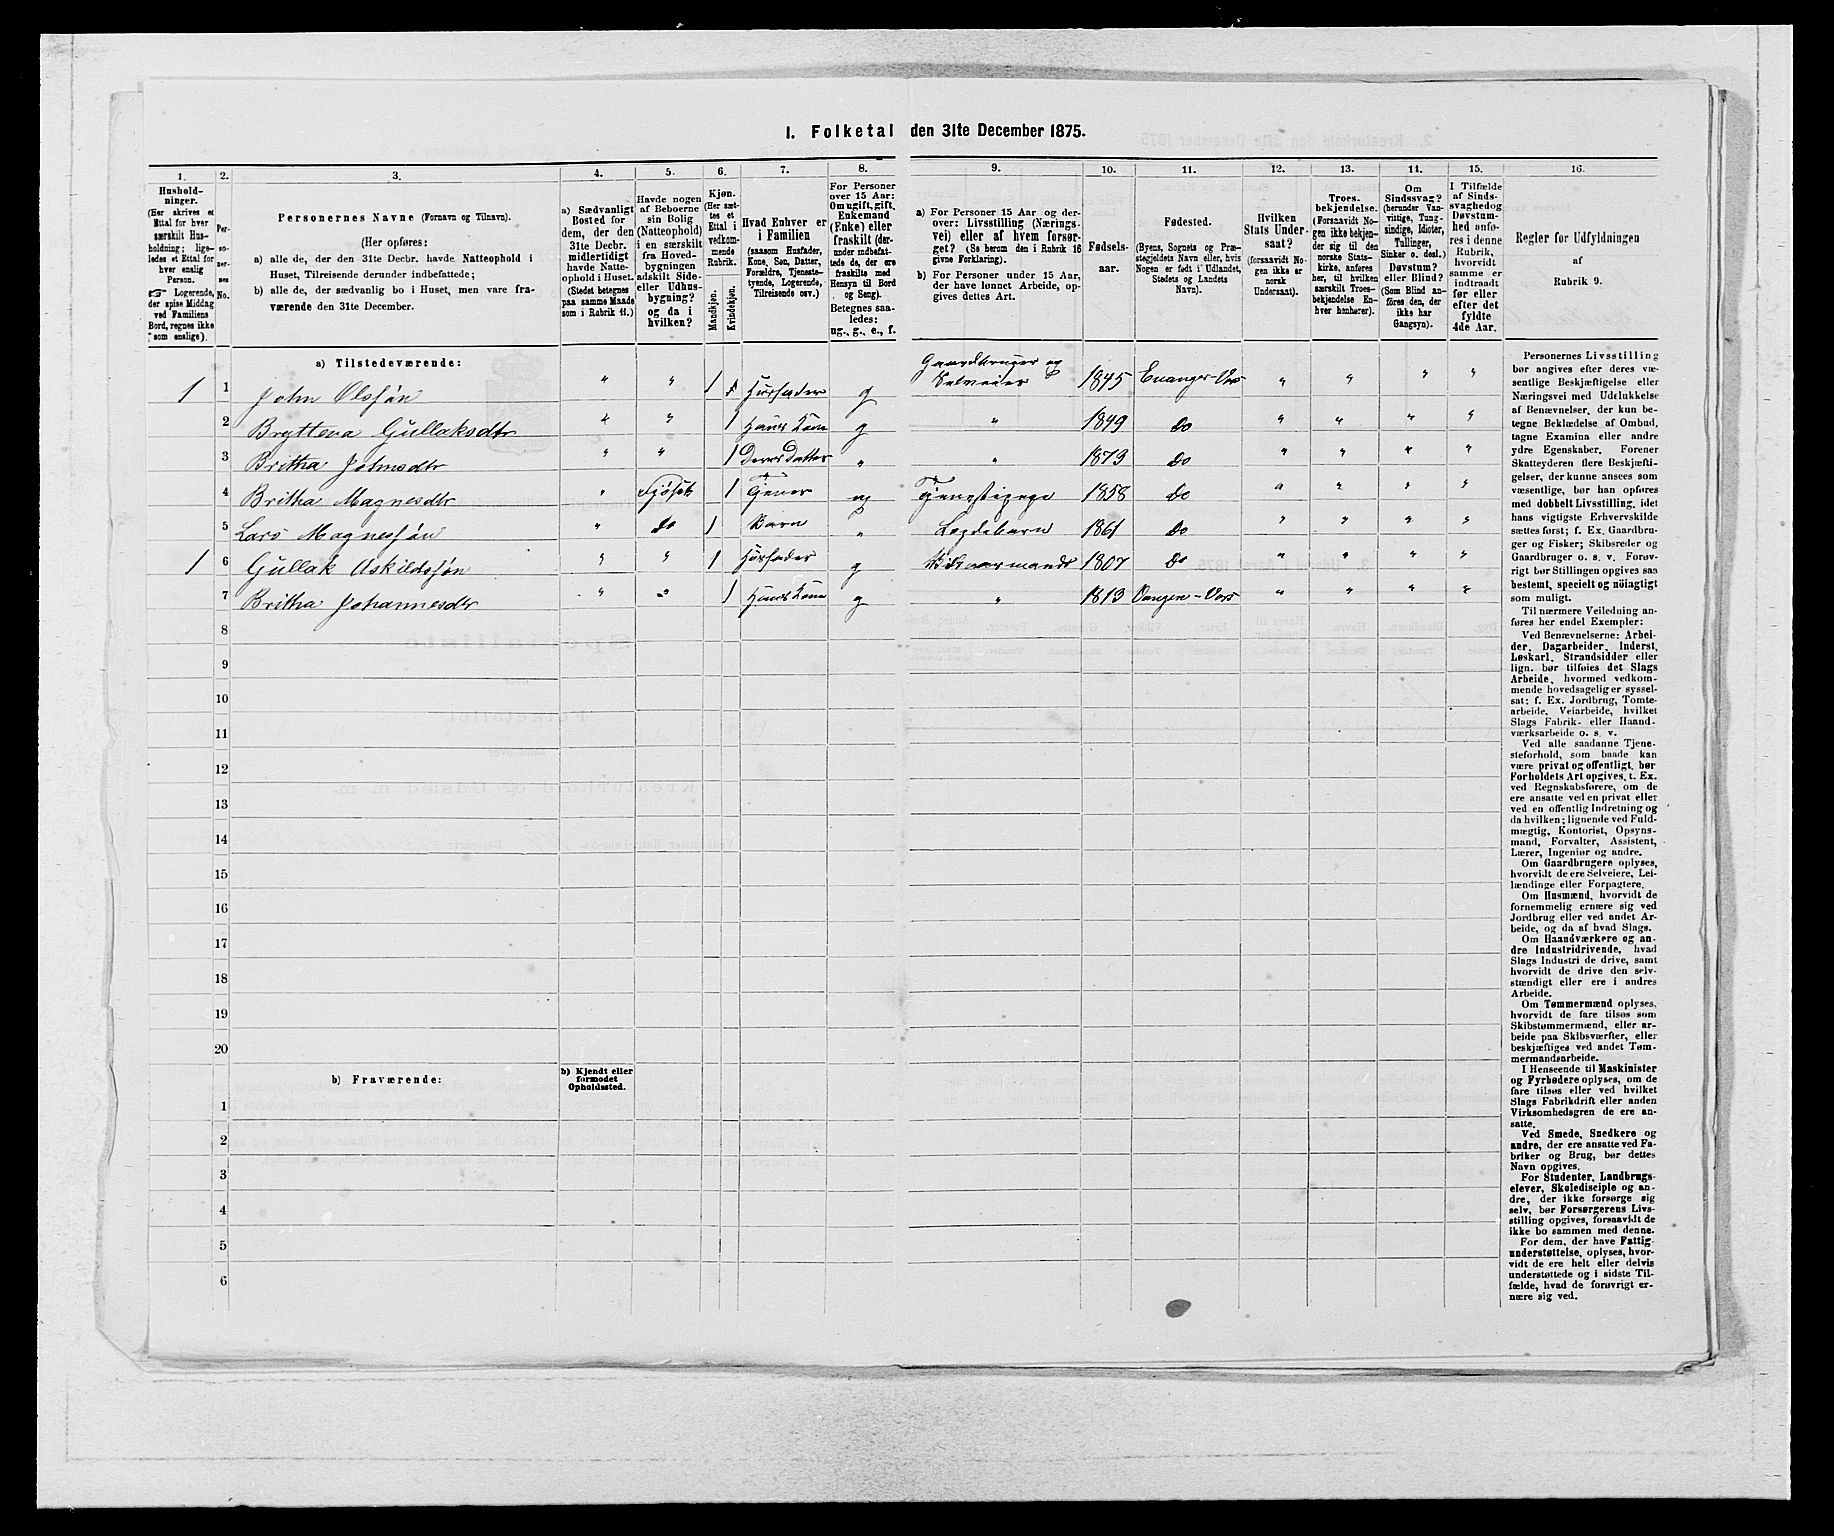 1. Folketal den 31te December 1875.
1.
2.
3.
4.
5.
6.
7.
8.
9.
10.
11.
12.
13.
14.
15.
16.
Hushold-
ninger.
(Her skrives et
Ettal for hver
særskilt Hus-
holdning; lige-
ledes et Ettal for
hver enslig
Person.
☞ Logerende,
der spise Middag
ved Familiens
Bord, regnes ikke
som enslige).
Per-
so-
ner-
nes
No.
Personernes Navne (Fornavn og Tilnavn).
(Her opføres:
a) alle de, der den 31te Decbr. havde Natteophold i
Huset, Tilreisende derunder indbefattede;
b) alle de, der sædvanlig bo i Huset, men vare fra-
værende den 31te December.
a) Sædvanligt
Bosted for
dem, der den
31te Decbr.
midlertidigt
havde Natte-
ophold i Huset.
(Stedet betegnes
paa samme Maade
som i Rubrik 11.)
Havde nogen
af Beboerne
sin Bolig
(Natteophold)
i en særskilt
fra Hoved-
bygningen
adskilt Side-
eller Udhus-
bygning?
og da i
hvilken?
Kjøn.
(Her sæt-
tes et
Ettal i
vedkom-
mende
Rubrik.
Mandkjøn.
Kvindekjøn.
Hvad Enhver er
i Familien
(saasom Husfader,
Kone, Søn, Datter,
Forældre, Tjeneste-
tyende, Logerende,
Tilreisende osv.)
For Personer
over 15 Aar:
Om ugift, gift,
Enkemand
(Enke) eller
fraskilt (der-
under indbefat-
tede de, der ere
fraskilte med
Hensyn til Bord
og Seng).
Betegnes saa-
ledes:
ug., g., e., f.
a) For Personer 15 Aar og der-
over: Livsstilling (Nærings-
vei) eller af hvem forsør-
get? (Se herom den i Rubrik 16
givne Forklaring).
b) For Personer under 15 Aar,
der have lønnet Arbeide, op-
gives dettes Art.
Fødsels-
aar.
Fødested.
(Byens, Sognets og Præ-
stegjeldets Navn eller, hvis
Nogen er født i Udlandet,
Stedets og Landets
Navn).
Hvilken
Stats Under-
saat?
(forsaavidt No-
gen ikke er
norsk
Undersaat).
Troes-
bekjendelse.
(Forsaavidt No-
gen ikke bekjen-
der sig til den
norske Stats-
kirke, anføres
her, til hvilken
særskilt Troes-
bekjendelse En-
hver henhører).
Om
Sindssvag?
(herunder Van-
vittige, Tung-
sindige, Idioter,
Tullinger,
Sinker o. desl.)
Døvstum?
eller Blind?
(Som Blind anføres
den, der
ikke har
Gangsyn).
I Tilfælde
af Sinds-
svaghed og
Døvstum-
hed anfø-
res i denne
Rubrik,
hvorvidt
samme er
indtraadt
før eller
efter det
fyldte
4de Aar.
Regler for Udfyldningen
af
Rubrik 9.
a) Tilstedeværende:
1 1 John Olssøn " " 1 Husfader g Gaardbruger og Selveier 1845 Evanger Vos " " " "
2 Brytteva Gullaksdtr " " 1 Hans Kone g " 1849 Do " " " "
3 Britha Johnsdtr " " 1 Deres Datter " " 1873 Do " " " "
4 Britha Magnesdtr " Fjøset 1 Tjener ug Tjenestepige 1858 Do " " " "
5 Lars Magnessøn " do 1 Barn " Lægdebarn 1861 Do " " " "
1 6 Gullak Askildssøn " " 1 Husfader g 1807 Do " " " "
7 Britha Johannesdtr " " 1 Hans Kone g " 1813 Vangen-Vos " " " "
8
9
10
11
12
13
14
15
16
17
18
19
20
b) Fraværende:
b) Kjendt eller
formodet
Opholdssted.
1
2
3
4
5
6
Personernes Livsstilling
bør angives efter deres væ-
sentlige Beskjæftigelse eller
Næringsvei med Udelukkelse
af Benævnelser, der kun be-
tegne Beklædelse af Ombud,
tagne Examina eller andre
ydre Egenskaber. Forener
Skatteyderen flere Beskjæfti-
gelser, der kunne ansees som
væsentlige, bør han opføres
med dobbelt Livsstilling, idet
hans vigtigste Erhvervskilde
sættes først; f. Ex. Gaardbru-
ger og Fisker; Skibsreder og
Gaardbruger o. s. v. Forøv-
rigt bør Stillingen opgives saa
bestemt, specielt og nøiagtigt
som muligt.
Til nærmere Veiledning an-
føres her endel Exempler:
Ved Benævnelserne: Arbei-
der, Dagarbeider, Inderst,
Løskarl, Strandsidder eller
lign. bør tilføies det Slags
Arbeide, hvormed vedkom-
mende hovedsagelig er syssel-
sat; f. Ex. Jordbrug, Tomte-
arbeide, Veiarbeide, hvilket
Slags Fabrik- eller Haand-
værksarbeide o. s. v.
Ved alle saadanne Tjene-
steforhold, som baade kan
være privat og offentligt, bør
Forholdets Art opgives, t. Ex.
ved Regnskabsførere, om de
ere ansatte ved en privat eller
ved en offentlig Indretning og
da hvilken; lignende ved Fuld-
mægtig, Kontorist, Opsyns-
mand, Forvalter, Assistent,
Lærer, Ingeniør og andre.
Om Gaardbrugere oplyses,
hvorvidt de ere Selveiere, Lei-
lændinge eller Forpagtere.
Om Husmænd, hvorvidt de
fornemmelig ernære sig ved
Jordbrug eller ved andet Ar-
beide, og da af hvad Slags.
Om Haandværkere og an-
dre Industridrivende, hvad
Slags Industri de drive, samt
hvorvidt de drive den selv-
stændigt eller ere i andres
Arbeide.
Om Tømmermænd oplyses,
hvorvidt de fare tilsøs som
Skibstømmermænd, eller ar-
beide paa Skibsværfter, eller
beskjæftiges ved andet Tøm-
mermandsarbeide.
I Henseende til Maskinister
og Fyrbødere oplyses, om de
fare tilsøs eller ved hvilket
Slags Fabrikdrift eller anden
Virksomhedsgren de ere an-
satte.
Ved Smede, Snedkere og
andre, der ere ansatte ved Fa-
briker og Brug, bør dettes
Navn opgives.
For Studenter, Landbrugs-
elever, Skoledisciple og an-
dre, der ikke forsørge sig
selv, bør Forsørgerens Livs-
stilling opgives, forsaavidt de
ikke bo sammen med denne.
For dem, der have Fattig-
understøttelse, oplyses, hvor-
vidt de ere helt eller delvis
understøttede og i sidste Til-
fælde, hvad de forøvrigt er-
nære sig ved.